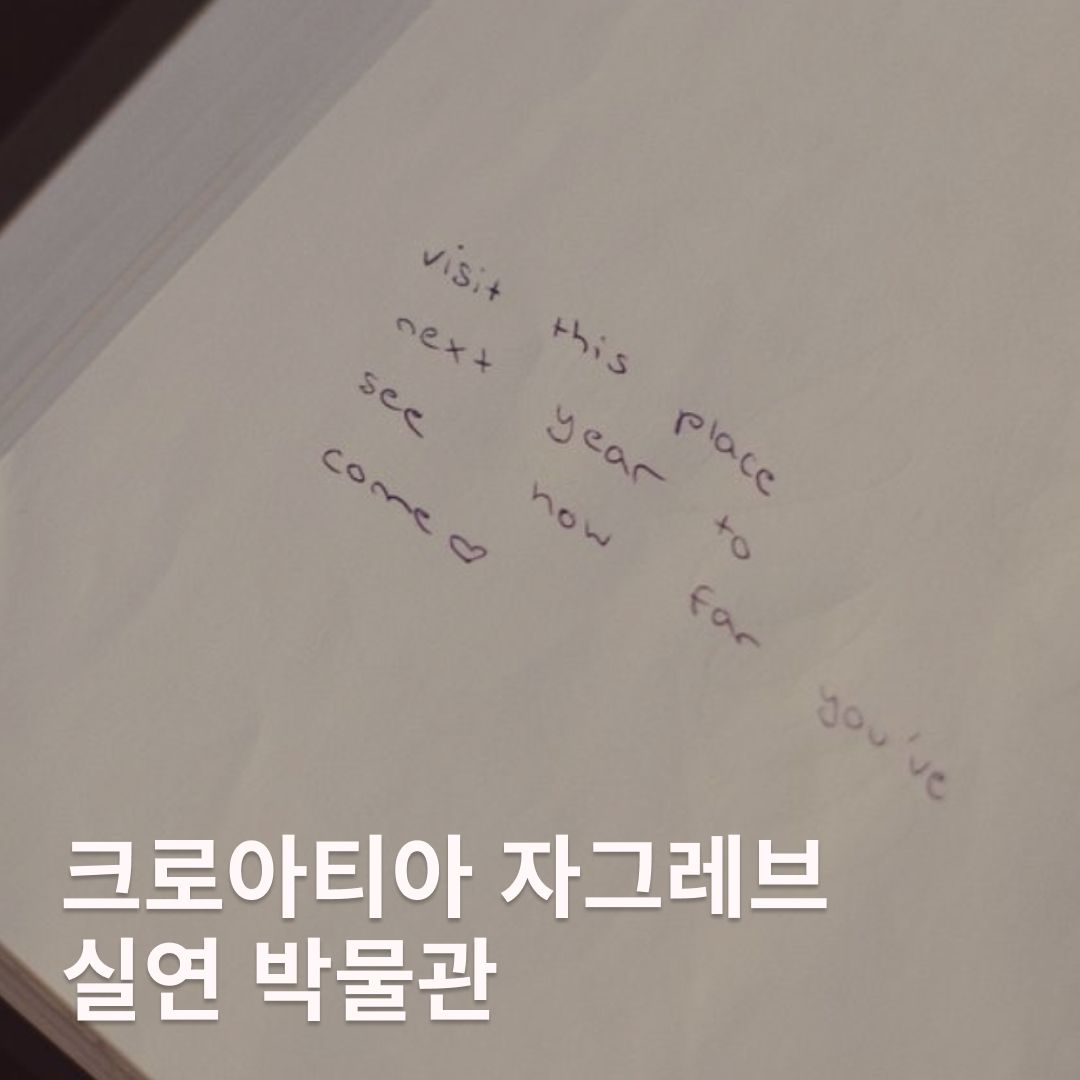 visit this place
next year to
see how far you've
come ♡
크로아티아 자그레브
실연 박물관